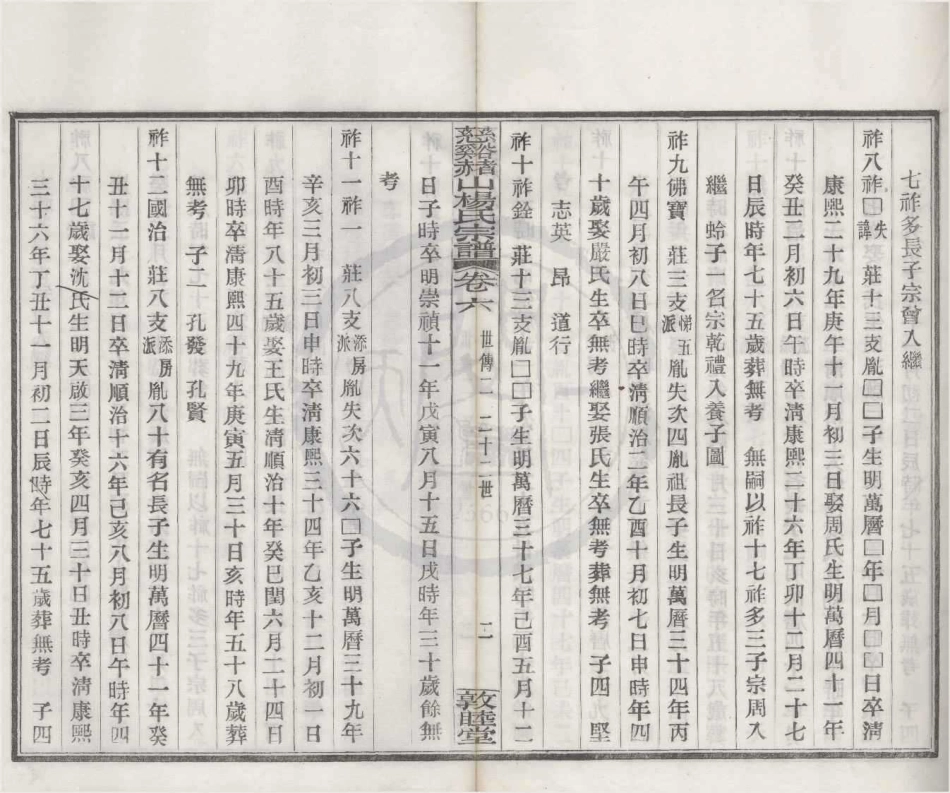 七祚多長子宗曾入繼
祚八祚□失諱 莊十三支胤□□子生明萬曆□年□月□□日卒清
康熙二十九年庚午十一月初三日娶周氏生明萬曆四十一年
癸丑二月初六日午時卒清康熙二十六年丁卯十二月二十七
日辰時年七十五歲葬無考 無嗣以祚十七祚多三子宗周入
繼 蛉子一名宗乾禮入養子圖
祚九佛寶 莊三支悌五派胤失次四胤祖長子生明萬曆三十四年丙
午四月初八日巳時卒清順治二年乙酉十月初七日申時年四
十歲娶嚴氏生卒無考繼娶張氏生卒無考葬無考 子四 堅
志英 昂 道行
祚十祚銓 莊十三支胤□□子生明萬曆三十七年己酉五月十二
日子時卒明崇禎十一年戊寅八月十五日戌時年三十歲餘無
慈谿赭山楊氏宗譜 卷六 世傳二 二十二世 二 敦睦堂
考
祚十一祚一 莊八支添房派胤失次六十六□子生明萬曆三十九年
辛亥三月初三日申時卒清康熙三十四年乙亥十二月初一日
酉時年八十五歲娶王氏生清順治十年癸巳閏六月二十四日
卯時卒清康熙四十九年庚寅五月三十日亥時年五十八歲葬
無考 子二 孔發 孔賢
祚十二國治 莊八支添房派胤八十有名長子生明萬曆四十一年癸
丑十一月十二日卒清順治十六年己亥八月初八日午時年四
十七歲娶沈氏生明天啟三年癸亥四月三十日丑時卒清康熙
三十六年丁丑十一月初二日辰時年七十五歲葬無考 子四